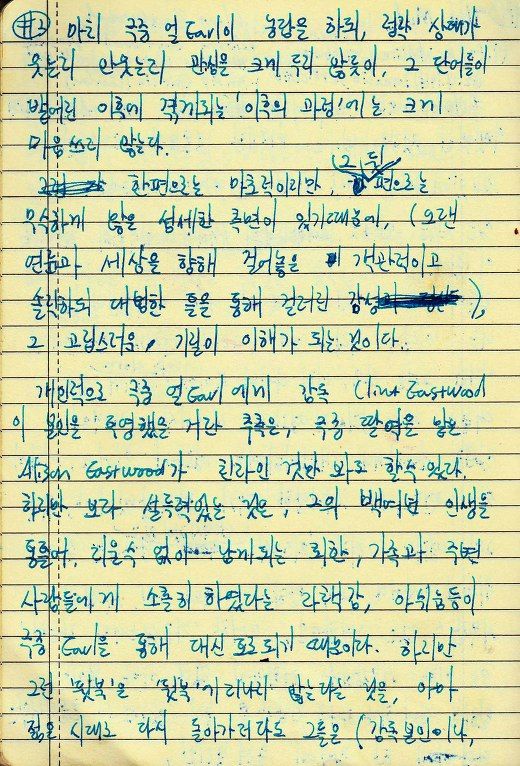 #2 마치 극중 얼Earl이 농담을 하되, 상대가
웃는리 안웃는리 관심을 크게 두리 않듯이, 그 단어들이
벌어진 이후에 격게되는 '이후의 과정'에는 크게
마음쓰리 않는다.
한편으로는 마초적이리만, (그 뒤) 편으로는
무수하게 많은 섬세한 측면이 있기때문에, (오랜
연륜과 세상을 향해 걸어놓은 객관적이고
솔직하되 대범한 틀을 통해 걸러진 감성),
그 고립스러움, 기질이 이해가 되는 것이다.
개인적으로 극중 얼Earl에게 감독 Clint Eastwood
이 본인을 투영했을 거란 추측은, 극중 딸역을 맡은
Alison Eastwood가 친딸인 것만 봐도 할수 있다.
하리만 보다 설득력있는 것은, 그의 백여편 인생을
통틀어, 리울수 없이 남게되는 회한, 가족과 주변
사람들에게 소홀히 하였다는 자책감, 아쉬움등이
극중 Earl을 통해 대신 토로되기 때문이다. 하리만
그런 '뒷북'은 '뒷북'이리나리 않는다는 것을, 아마
젊은 시대로 다시 돌아가더라도 그들은 (감독본인이나,